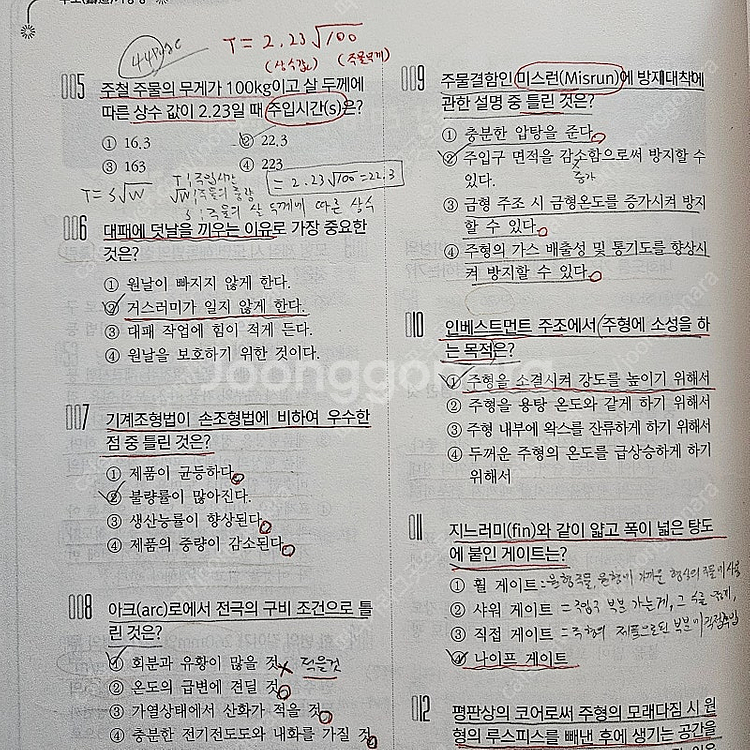 44page
T = 2.23√100
(상수값) (주물무게)
005 주철 주물의 무게가 100kg이고 살 두께에
따른 상수 값이 2.23일 때 주입시간(s)은?
① 16.3 ② 22.3
③ 163 ④ 223
T = S√W T : 주입시간
= 2.23√100 = 22.3
√W : 주물의 중량
S : 주물의 살 두께에 따른 상수
006 대패에 덧날을 끼우는 이유로 가장 중요한
것은?
① 원날이 빠지지 않게 한다.
② 거스러미가 일지 않게 한다.
③ 대패 작업에 힘이 적게 든다.
④ 원날을 보호하기 위한 것이다.
007 기계조형법이 손조형법에 비하여 우수한
점 중 틀린 것은?
① 제품이 균등하다.
② 불량률이 많아진다.
③ 생산능률이 향상된다.
④ 제품의 중량이 감소된다.
008 아크(arc)로에서 전극의 구비 조건으로 틀
린 것은?
① 회분과 유황이 많을 것 적을것
② 온도의 급변에 견딜 것
③ 가열상태에서 산화가 적을 것
④ 충분한 전기전도도와 내화를 가질 것
009 주물결함인 미스런(Misrun)에 방재대착에
관한 설명 중 틀린 것은?
① 충분한 압탕을 준다.
② 주입구 면적을 감소함으로써 방지할 수
있다.
증가
③ 금형 주조 시 금형온도를 증가시켜 방지
할 수 있다.
④ 주형의 가스 배출성 및 통기도를 향상시
켜 방지할 수 있다.
010 인베스트먼트 주조에서 주형에 소성을 하
는 목적은?
① 주형을 소결시켜 강도를 높이기 위해서
② 주형을 용탕 온도와 같게 하기 위해서
③ 주형 내부에 왁스를 잔류하게 하기 위해서
④ 두꺼운 주형의 온도를 급상승하게 하기
위해서
011 지느러미(fin)와 같이 얇고 폭이 넓은 탕도
에 붙인 게이트는?
① 휠 게이트 : 원형주물, 원형에 가까운 형상의 주물에 사용
② 샤워 게이트
③ 직접 게이트
④ 나이프 게이트
012 평판상의 코어로써 주형의 모래다짐 시 원
형의 루스피스를 빼낸 후에 생기는 공간을
Joonggonara